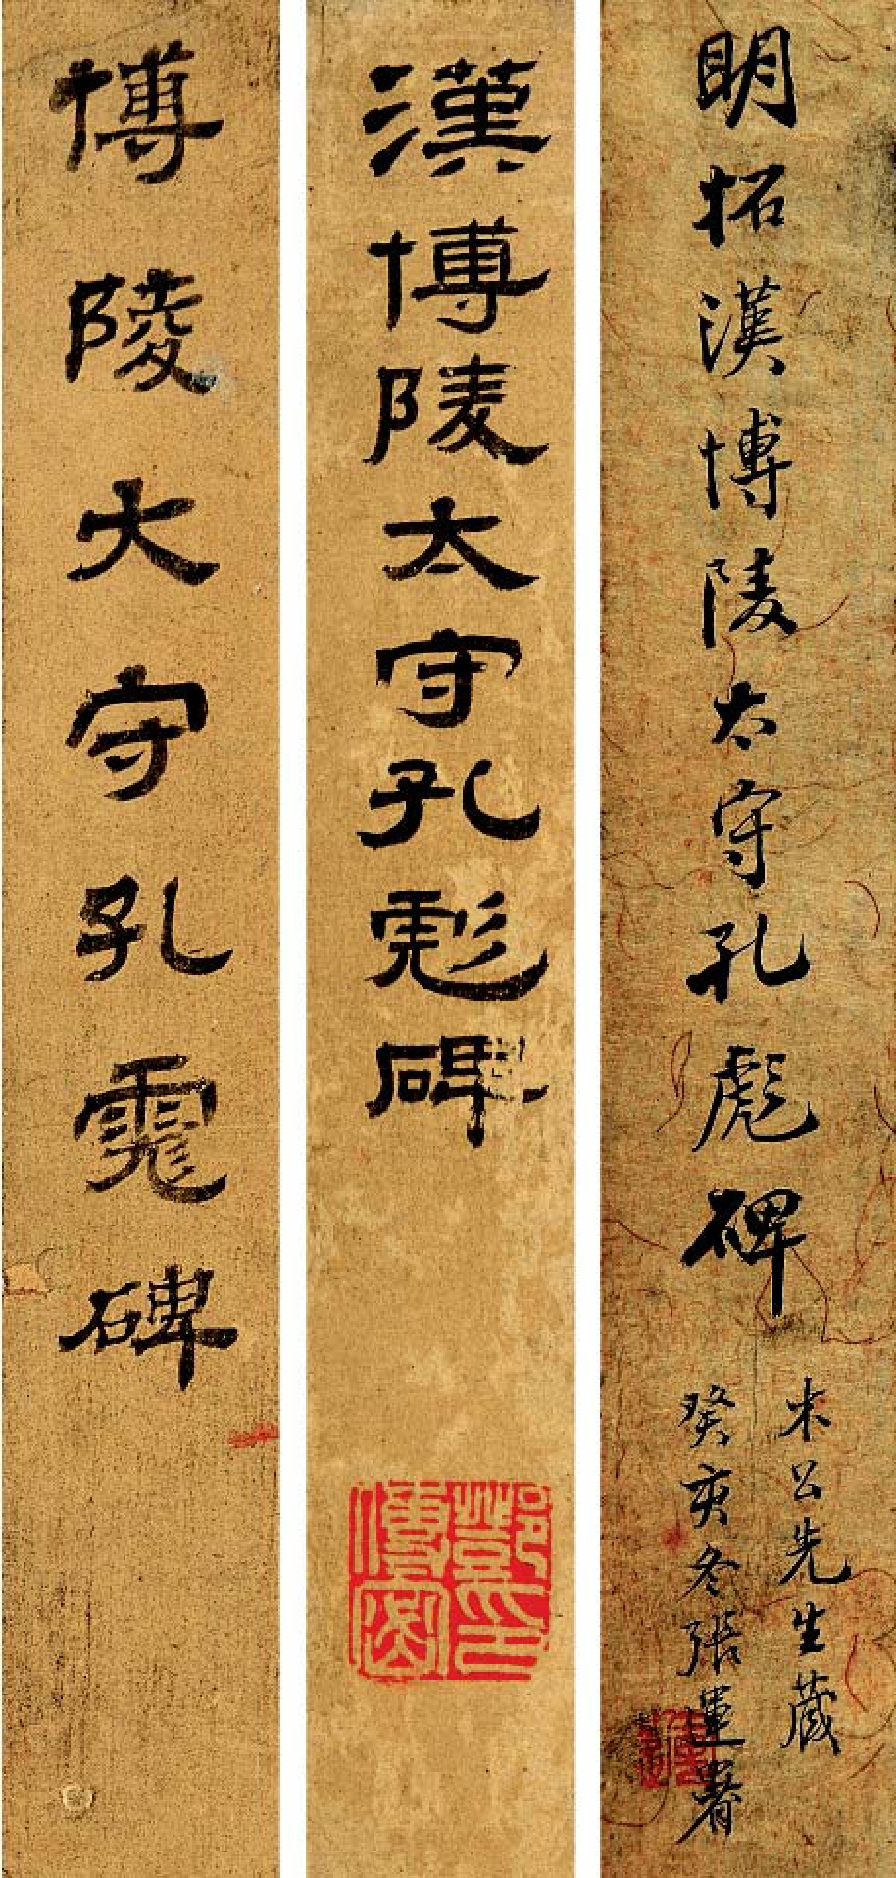 明拓漢博陵太守孔彪碑
木公先生藏
癸亥冬張運署
漢博陵太守孔彪碑
博陵大守孔彪碑